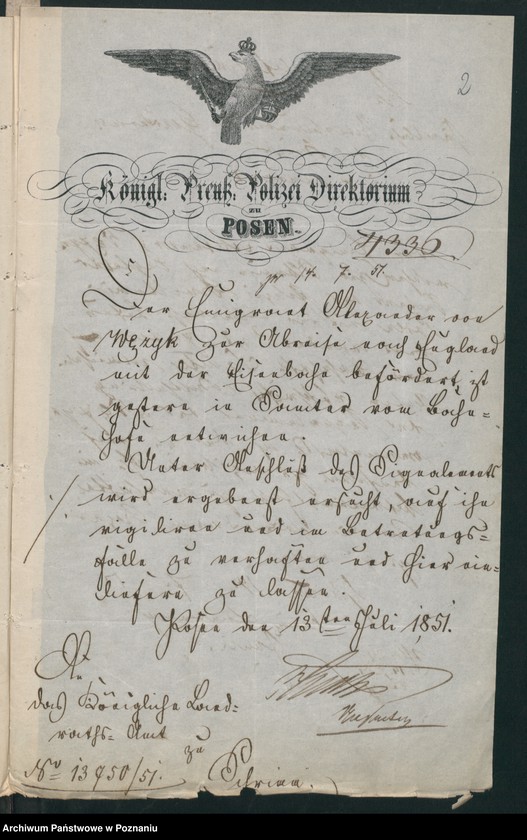 2
Königl: Preuß: Polizei Direktorium
zu
POSEN.
4336
pr 14. 7. 51.
Der Emigrant Alexander von
Wężyk zur Abreise nach England
mit der Eisenbahn befördert, ist
gestern in Samter vom Bahn=
hofe entwichen.
Unter Anschluß des Signalements
wird ergebenst ersucht, auf ihn
vigiliren und im Betretungs=
falle zu verhaften und hier ein=
liefern zu lassen.
Posen den 13ten Juli 1851.
An
das Königliche Land=
raths=Amt
zu
Schrimm.
No 13950/51.
Archiwum Państwowe w Poznaniu